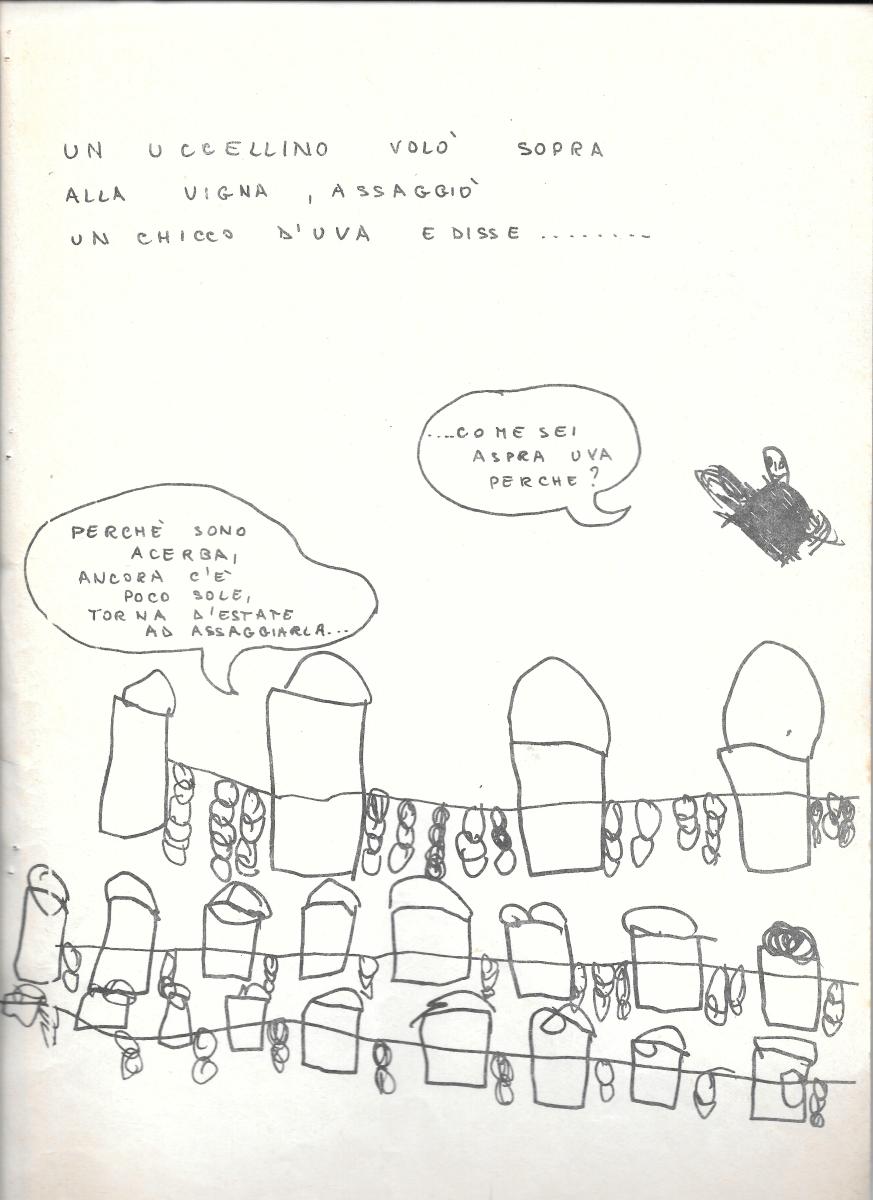 UN UCCELLINO VOLÒ SOPRA
ALLA VIGNA, ASSAGGIÒ
UN CHICCO D'UVA E DISSE ........
....COME SEI
ASPRA UVA
PERCHE?
PERCHÈ SONO
ACERBA,
ANCORA C'È
POCO SOLE,
TORNA D'ESTATE
AD ASSAGGIARLA...